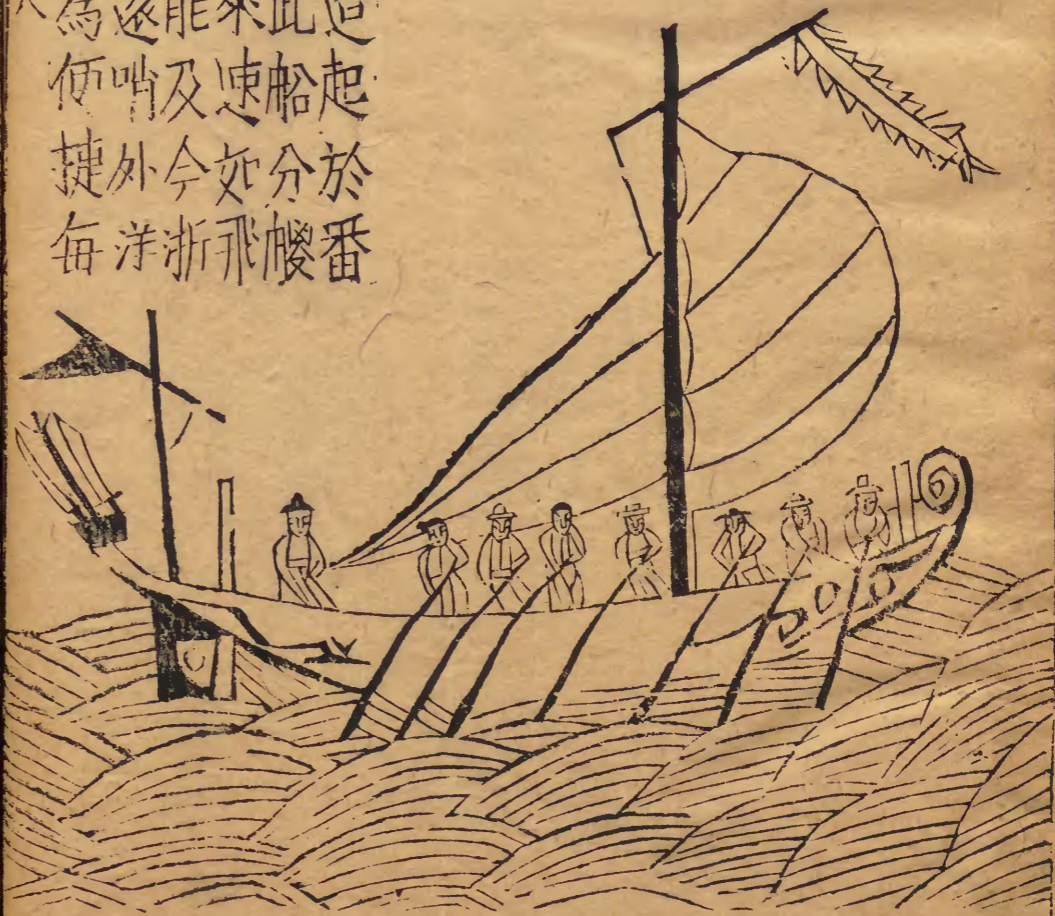 造起於番
此船分艐
來速如飛
能及今浙
遠哨外洋
為便捷每